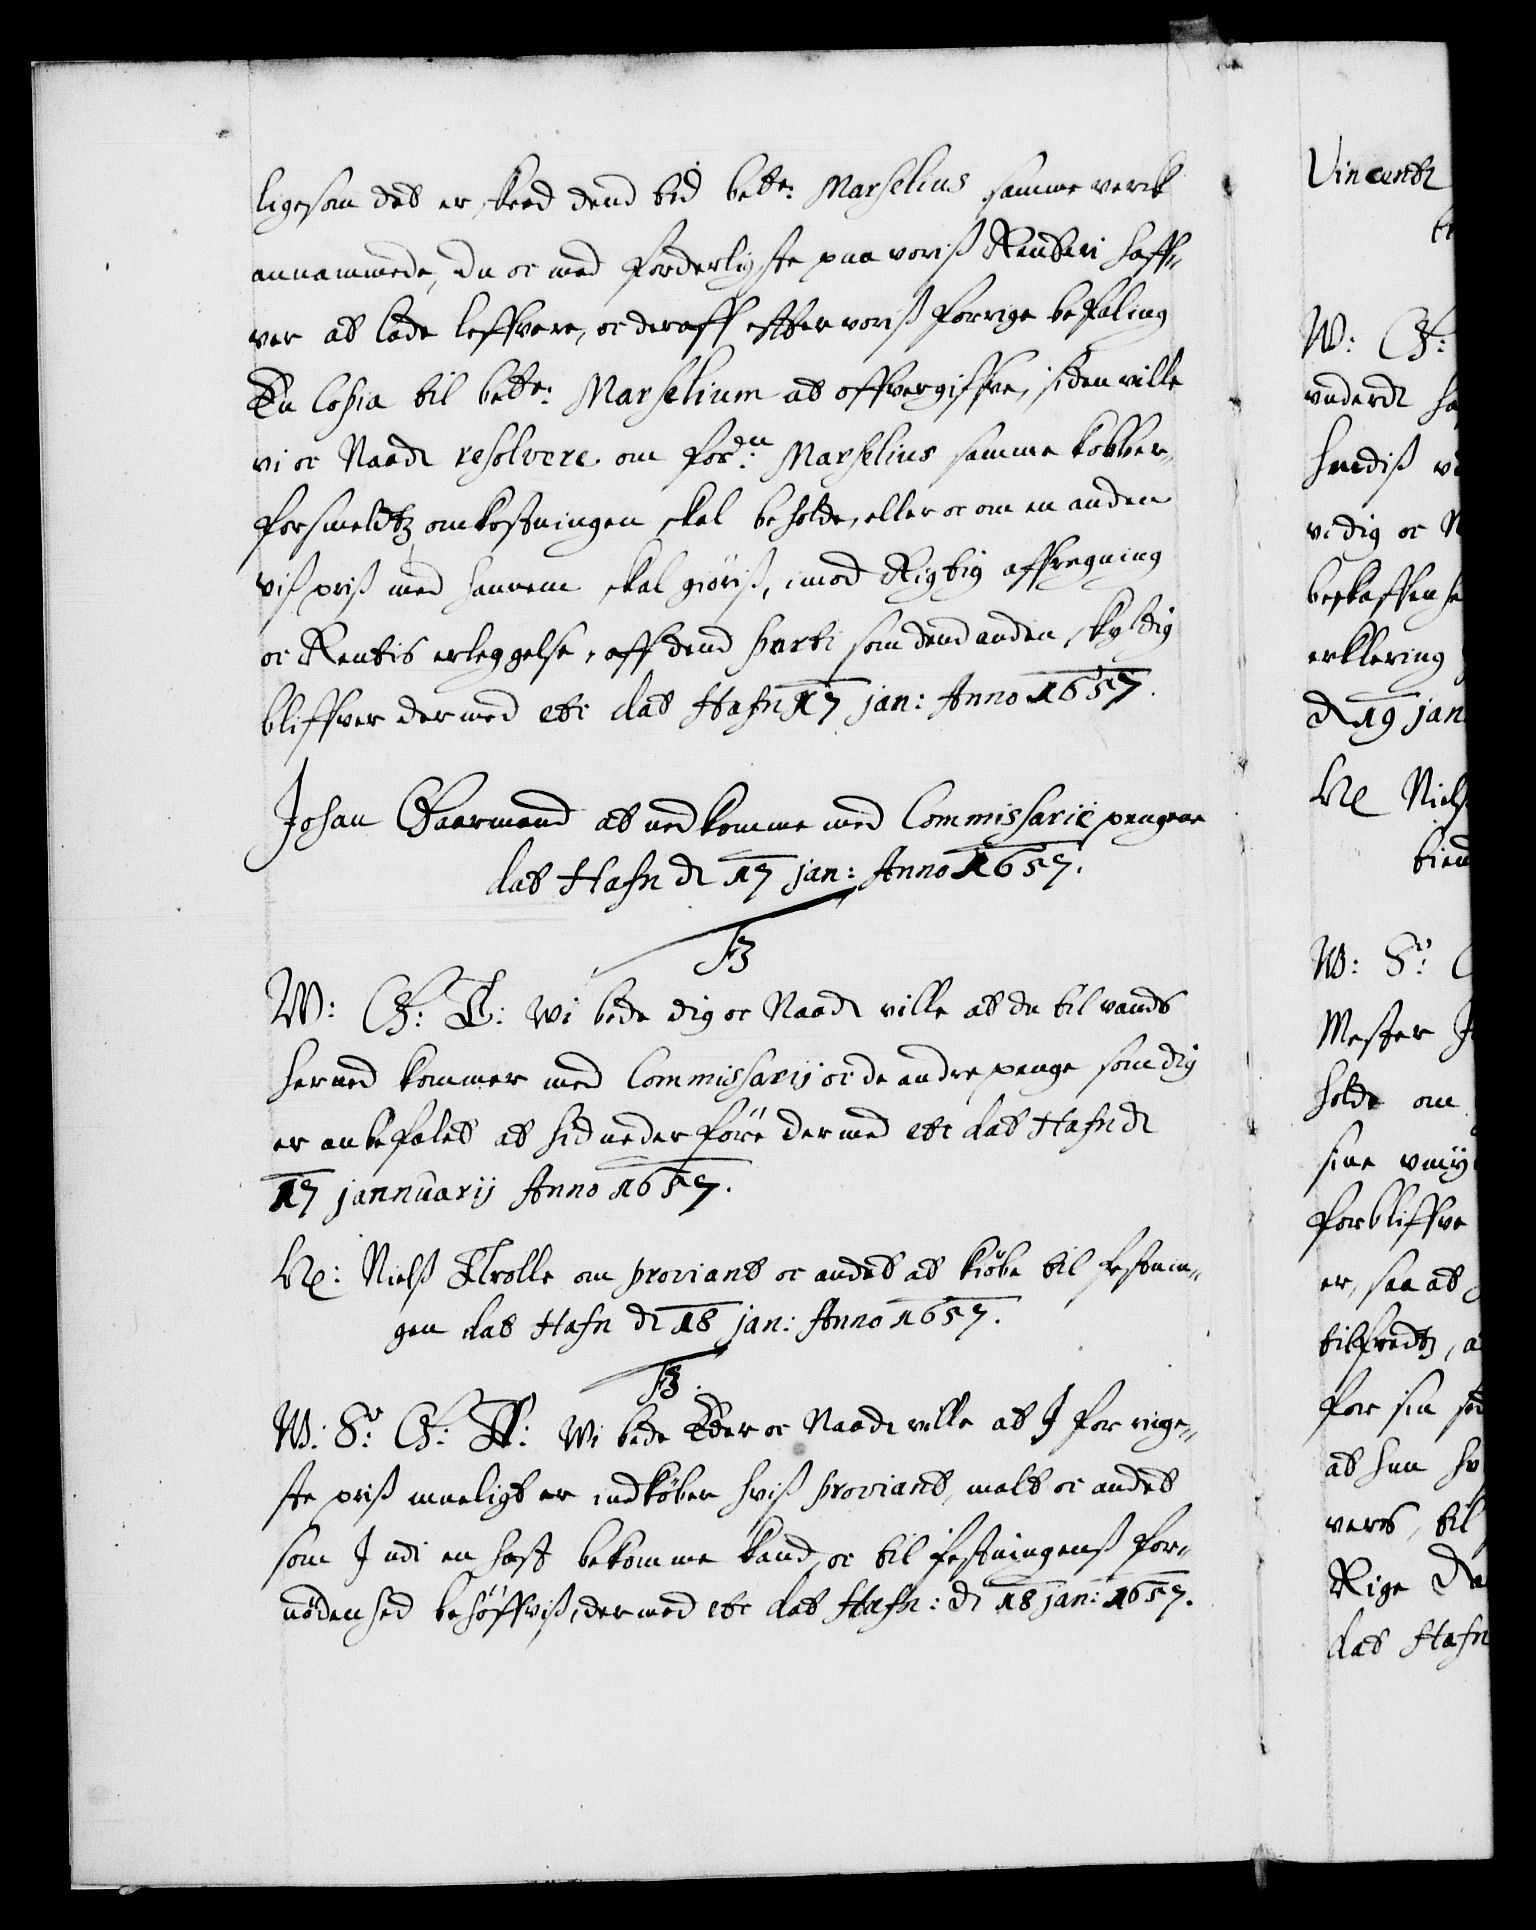 ligesom det er skeed dend tid bette: Marselius samme verck
annammede, du oc med forderligste paa voriß Renteri haff-
ver at lade leffvere, oc deraff effter voriß forrige befaling
En Copia til bette: Marselium at offvergiffve, siden ville
vi oc Naadt resolvere om forn: Marselius samme kobber-
forsmeldtz omkostningen skal beholde, eller oc om en anden
viß priß med hannem skal giöriß, imod Rigtig affregning
oc Rentis erleggelse, aff dend parti som dend anden skyldig
bliffver dermed etc dat Hafn 17 jan: Anno 1657.
Johan Gaarmand at nedkomme med Commissarie pengene
dat Hafn d 17 jan: Anno 1657.
F3
W: G: T: Wi bede dig oc Naadt ville at du til vands
herned kommer med Commissarij oc de andre penge som dig
er anbefalet at hid neder före dermed etc dat Hafn d
17 jannuarij Anno 1657.
Her: Nielß Trolle om proviant oc andet at kiöbe til festnin-
gen dat Hafn d 18 jan: Anno 1657.
F3.
W: S: G: T: Wi bede Eder oc Naadt ville at I for ringe-
ste priß mueligt er indköber hviß proviant, malt oc andet
som I udi en hast bekomme kand, oc til festningenß for-
nödenhed behöffviß, dermed etc dat Hafn: d 18 jan: 1657.
Vincentz
W: G:
vnderdt
hendiß
vedig oc
beskaffenhe
erklering
d 19 jan
Her Niels
tiend
W: S:
Mester
holde om
sine vmÿ
forbliffve
er, saa at
tilfredtz, a
for sin
at hun
verts, til
Rige Da
dat Hafn